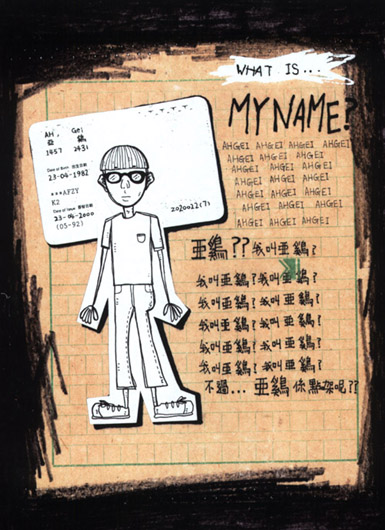 WHAT IS...
MY NAME?
AH, Gei
亞 鷄
1457 2431
Date of Birth 出生日期
23-04-1982
***AFZY
K2
Date of Issue 簽發日期
23-04-2000
(05-92)
2020022(7)
AHGEI AHGEI AHGEI AHGEI
AHGEI AHGEI AHGEI
AHGEI AHGEI AHGEI
AHGEI AHGEI AHGEI
AHGEI AHGEI AHGEI
AHGEI AHGEI AHGEI
AHGEI AHGEI AHGEI
亞鷄??我叫亞鷄?
我叫亞鷄?我叫亞鷄?
我叫亞鷄?我叫亞鷄?
我叫亞鷄?我叫亞鷄?
我叫亞鷄?我叫亞鷄?
我叫亞鷄?我叫亞鷄?
不過...亞鷄係點架呢??